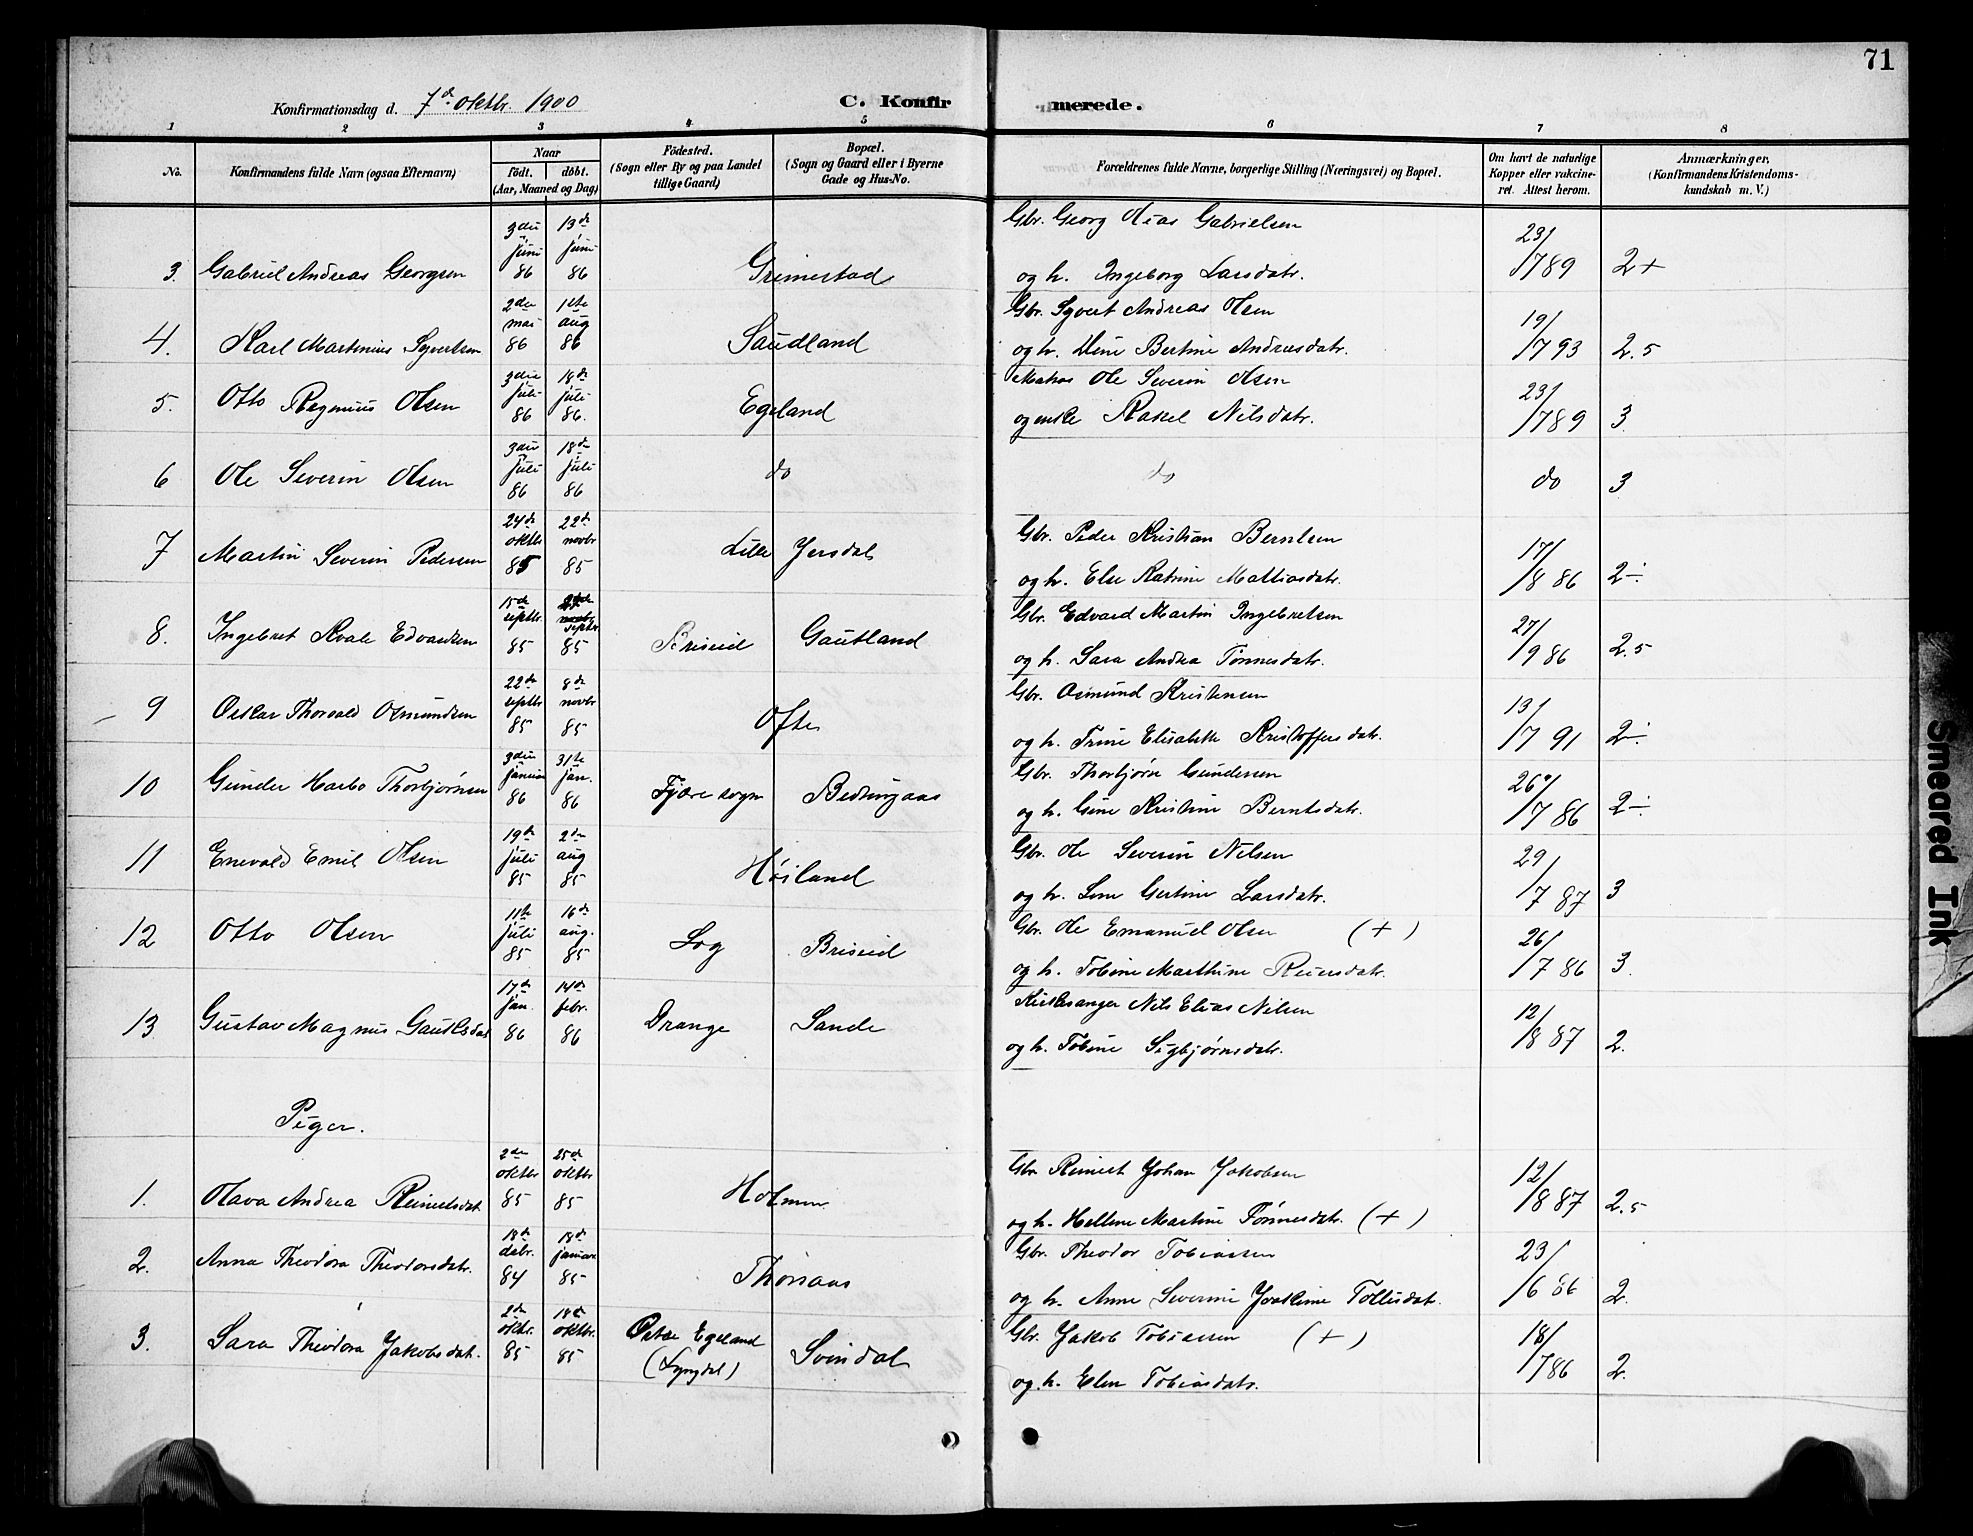 71
Konfirmationsdag d. 7de oktbr. 1900
C. Konfirmerede.
1 2 3 4 5 6 7 8
No. Konfirmandens fulde Navn (ogsaa Efternavn) Naar født. døbt. (Aar, Maaned og Dag) Födested. (Sogn eller By og paa Landet tillige Gaard) Bopæl. (Sogn og Gaard eller i Byerne Gade og Hus-No. Forældrenes fulde Navne, borgerlige Stilling (Næringsvei) og Bopæl. Om havt de naturlige Kopper eller vakcineret. Attest herom. Anmærkninger, (Konfirmandens Kristendomskundskab m. V.)
3. Gabriel Andreas Georgsen 3die juni 86 13de juni 86 Grimestad Gbr. Georg Elias Gabrielsen
og h. Ingeborg Larsdatr. 23/7 89 2+
4. Karl Martinius Syvertsen 2den mai 86 1ste aug 86 Saudland Gbr. Syvert Andreas Olsen
og h. Elene Bertine Andreasdatr. 19/7 93 2.5
5. Otto Regenius Olsen 3die juli 86 18de juli 86. Egeland Ole Severin Olsen
og enke Rakel Nilsdatr. 23/7 89 3
6 Ole Severin Olsen 3die juli 86 18de juli 86 do do do 3
7 Martin Severin Pedersen 24de oktbr 85 22de novbr 85 Lille Jersdal Gbr. Peder Kristian Berntsen
og h. Else Katrine Mathiasdatr. 17/8 86 2÷
8. Ingebret Kvale Edvardsen 15de septbr. 85 septbr. 85 Briseid Gautland Gbr. Edvard Martin Ingebretsen
og h. Sara Andrea Tønnesdatr. 27/9 86 2.5
9 Oskar Thorvald Osmundsen 22de septbr 85 8de novbr 85 Ofte Gbr. Osmund Kristensen
og h. Trine Elisabeth Kristoffersdatr. 13/7 91 2÷
10 Gunder Harbo Thorbjørnsen 3die januar 86 31te jan. 86 Fjære sogn Gbr. Thorbjørn Gundersen
og h. Gine Kristine Berntsdatr. 26/7 86 2÷
11 Enevald Emil Olsen 19de juli 85 2den aug 85 Høiland Gbr. Ole Severin Nilsen
og h. Lene Gertine Larsdatr. 29/7 87 3
12 Otto Olsen 11te juli 85 16de aug. 85 Log Briseid Gbr. Ole Emanuel Olsen (+)
og h. Tobine Marthine Reiersdatr. 26/7 86 3.
13 Gustav Magnus 17de jan. 86 14de febr. 86 Drange Sande Kirkesanger Nils Elias Nilsen
og h. Tobine Sigbjørnsdatr. 12/8 87 2.
Piger.
1. Olava Andrea Reinertsdat 2den oktbr 85 25de oktbr 85 Holmen Gbr Reinert Johan Jakobsen
og h. Hellene Martine Tønnesdatr. (+) 12/8 87 2.5
2. Anna Theodora Theodorsdatr. 18de dsbr. 84 18de januar 85 Thorsaas Gbr. Theodor Tobiassen
og h. Anne Severine Joakime Tollisdat. 23/6 86 2.
3. Sara Theodora Jakobsdat. 2den oktbr. 85 18de oktbr. 85 Østre Egeland (Lyngdal) Svindal Gbr. Jakob Tobiassen (+)
og h. Elen Tobiasdatr. 18/7 86 2.
Smeared Ink